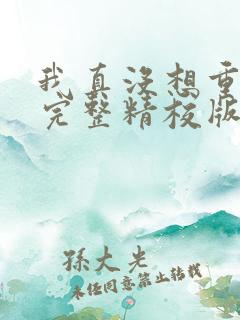 我真没想重
完整精校版
孫大光
未经同意禁止转载